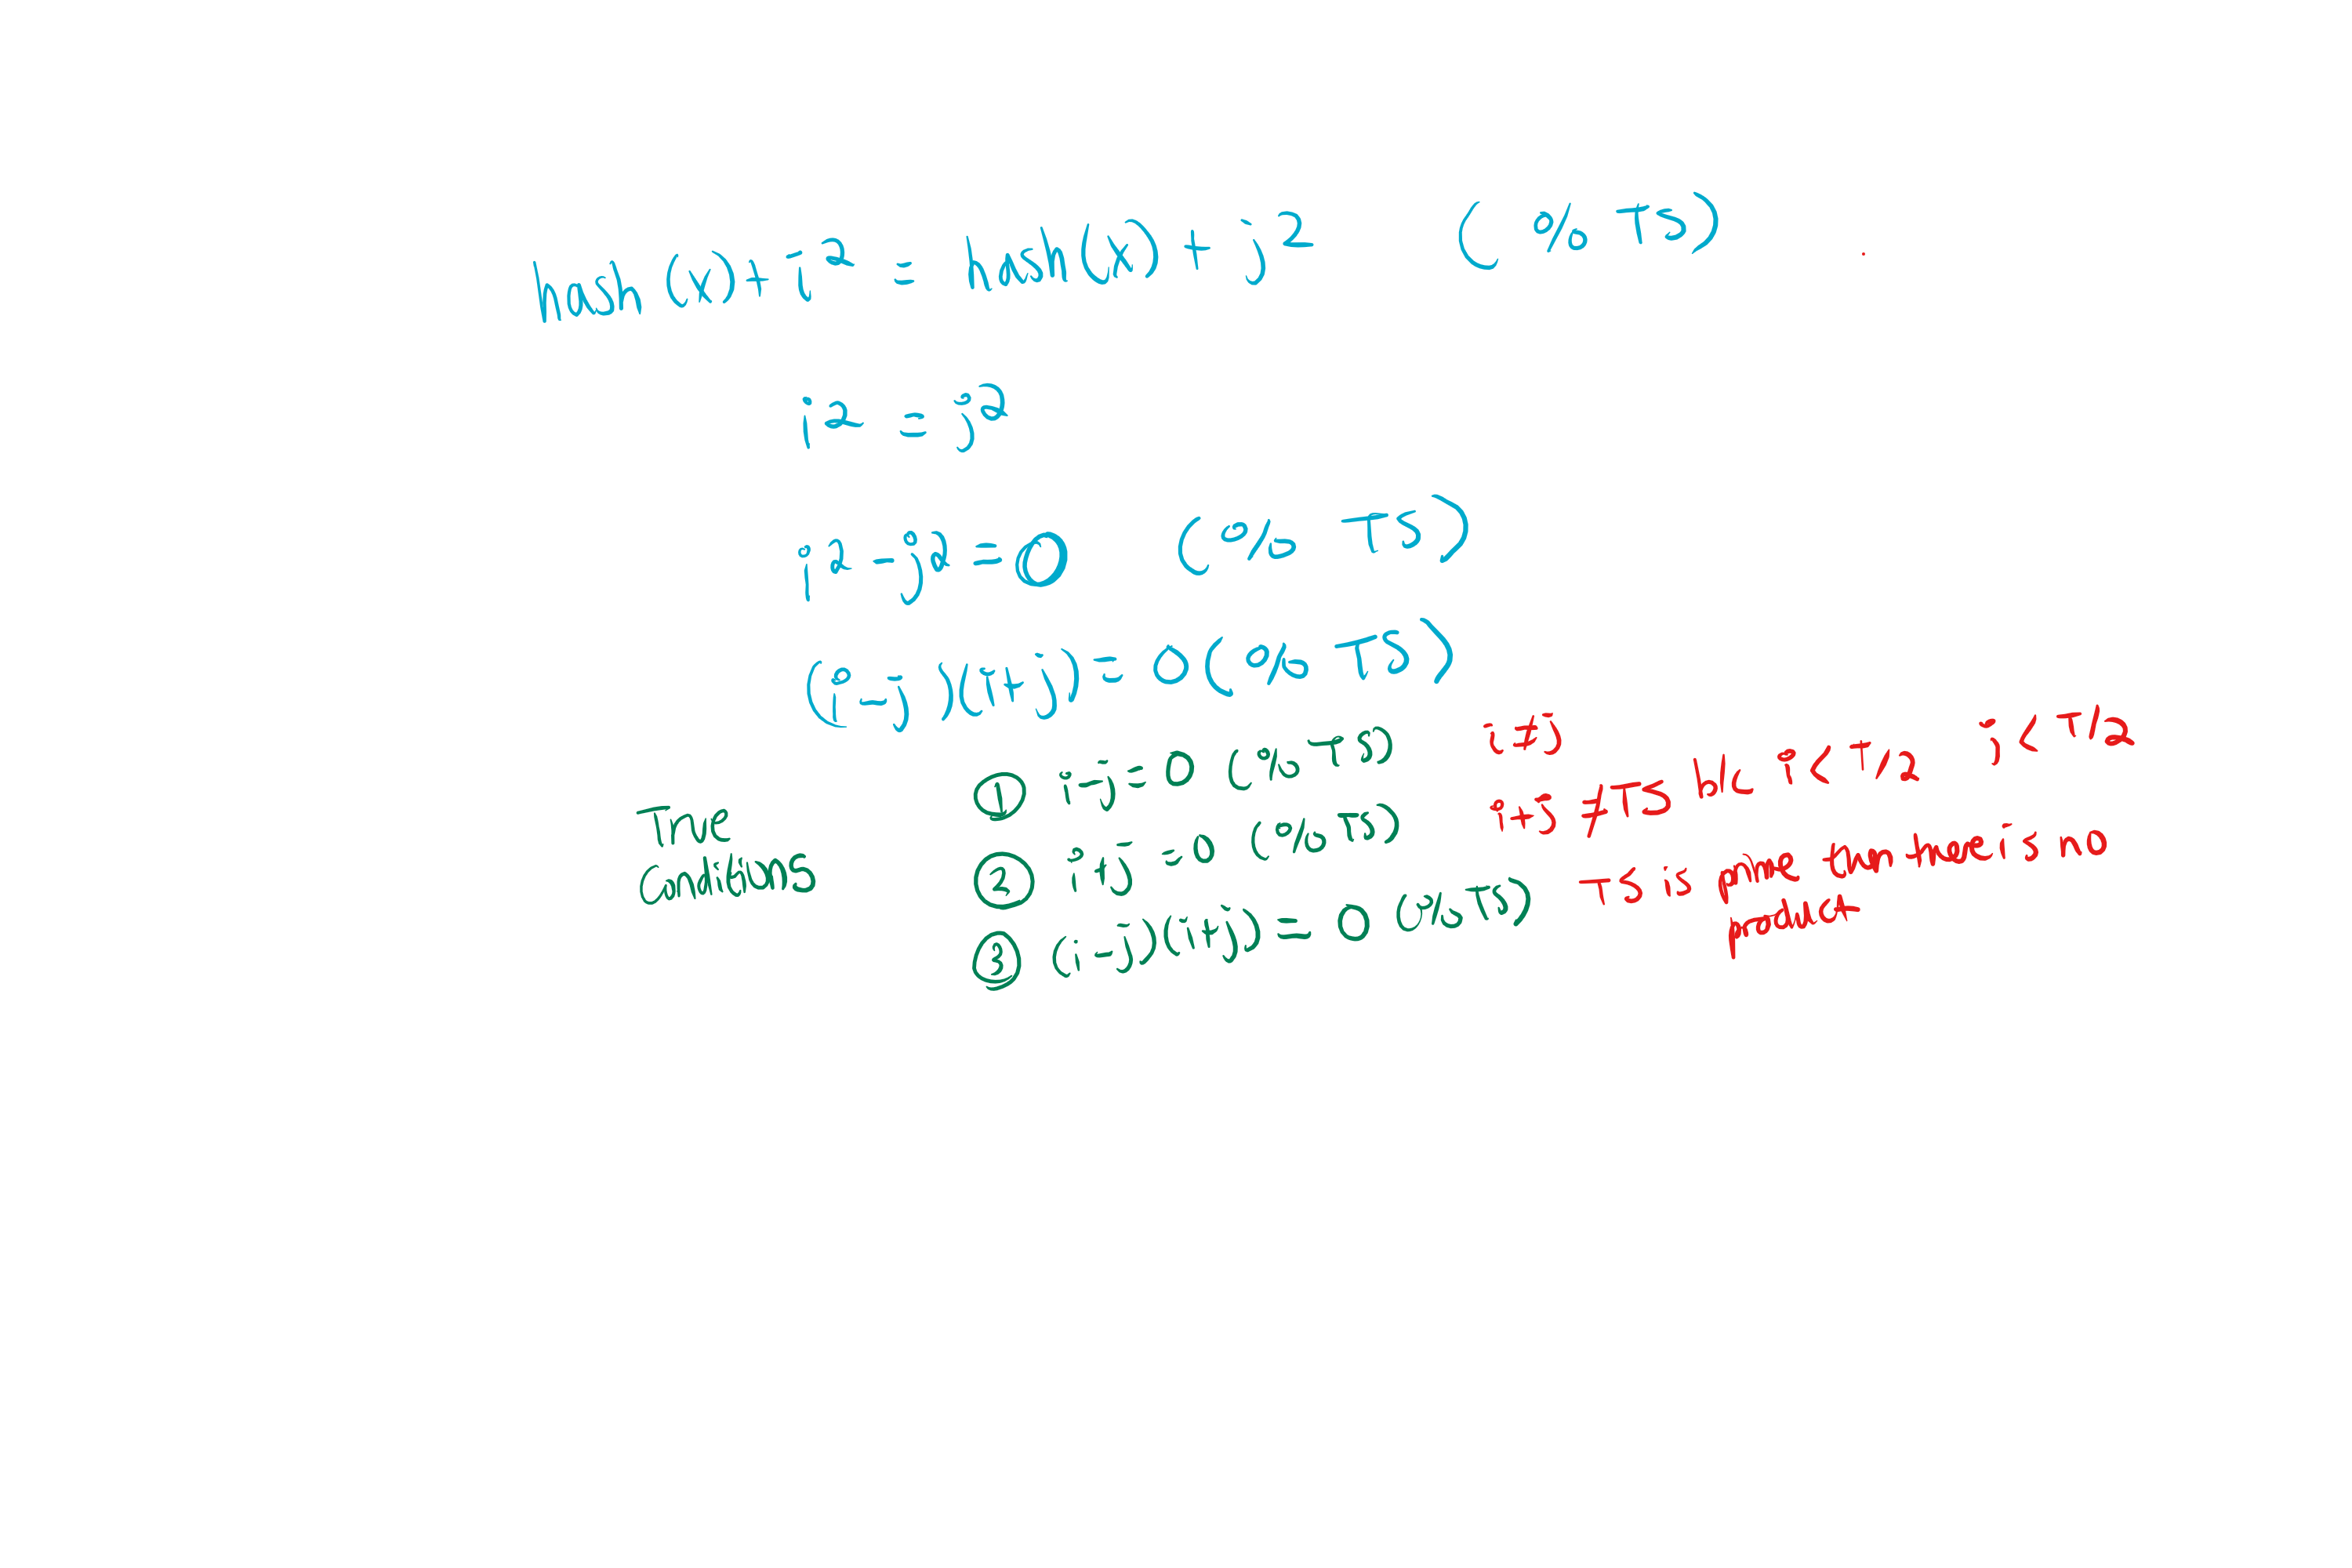 hash (x) + i² = hash(x) + j² ( % TS)
i² = j²
i² - j² = 0 ( % TS)
(i - j)(i + j) = 0 ( % TS)
True Conditions
① i - j = 0 (% TS) i ≠ j
② i + j = 0 (% TS) i + j ≠ TS b/c i < T/2 j < T/2
③ (i - j)(i + j) = 0 (% TS) TS is prime then there is no product